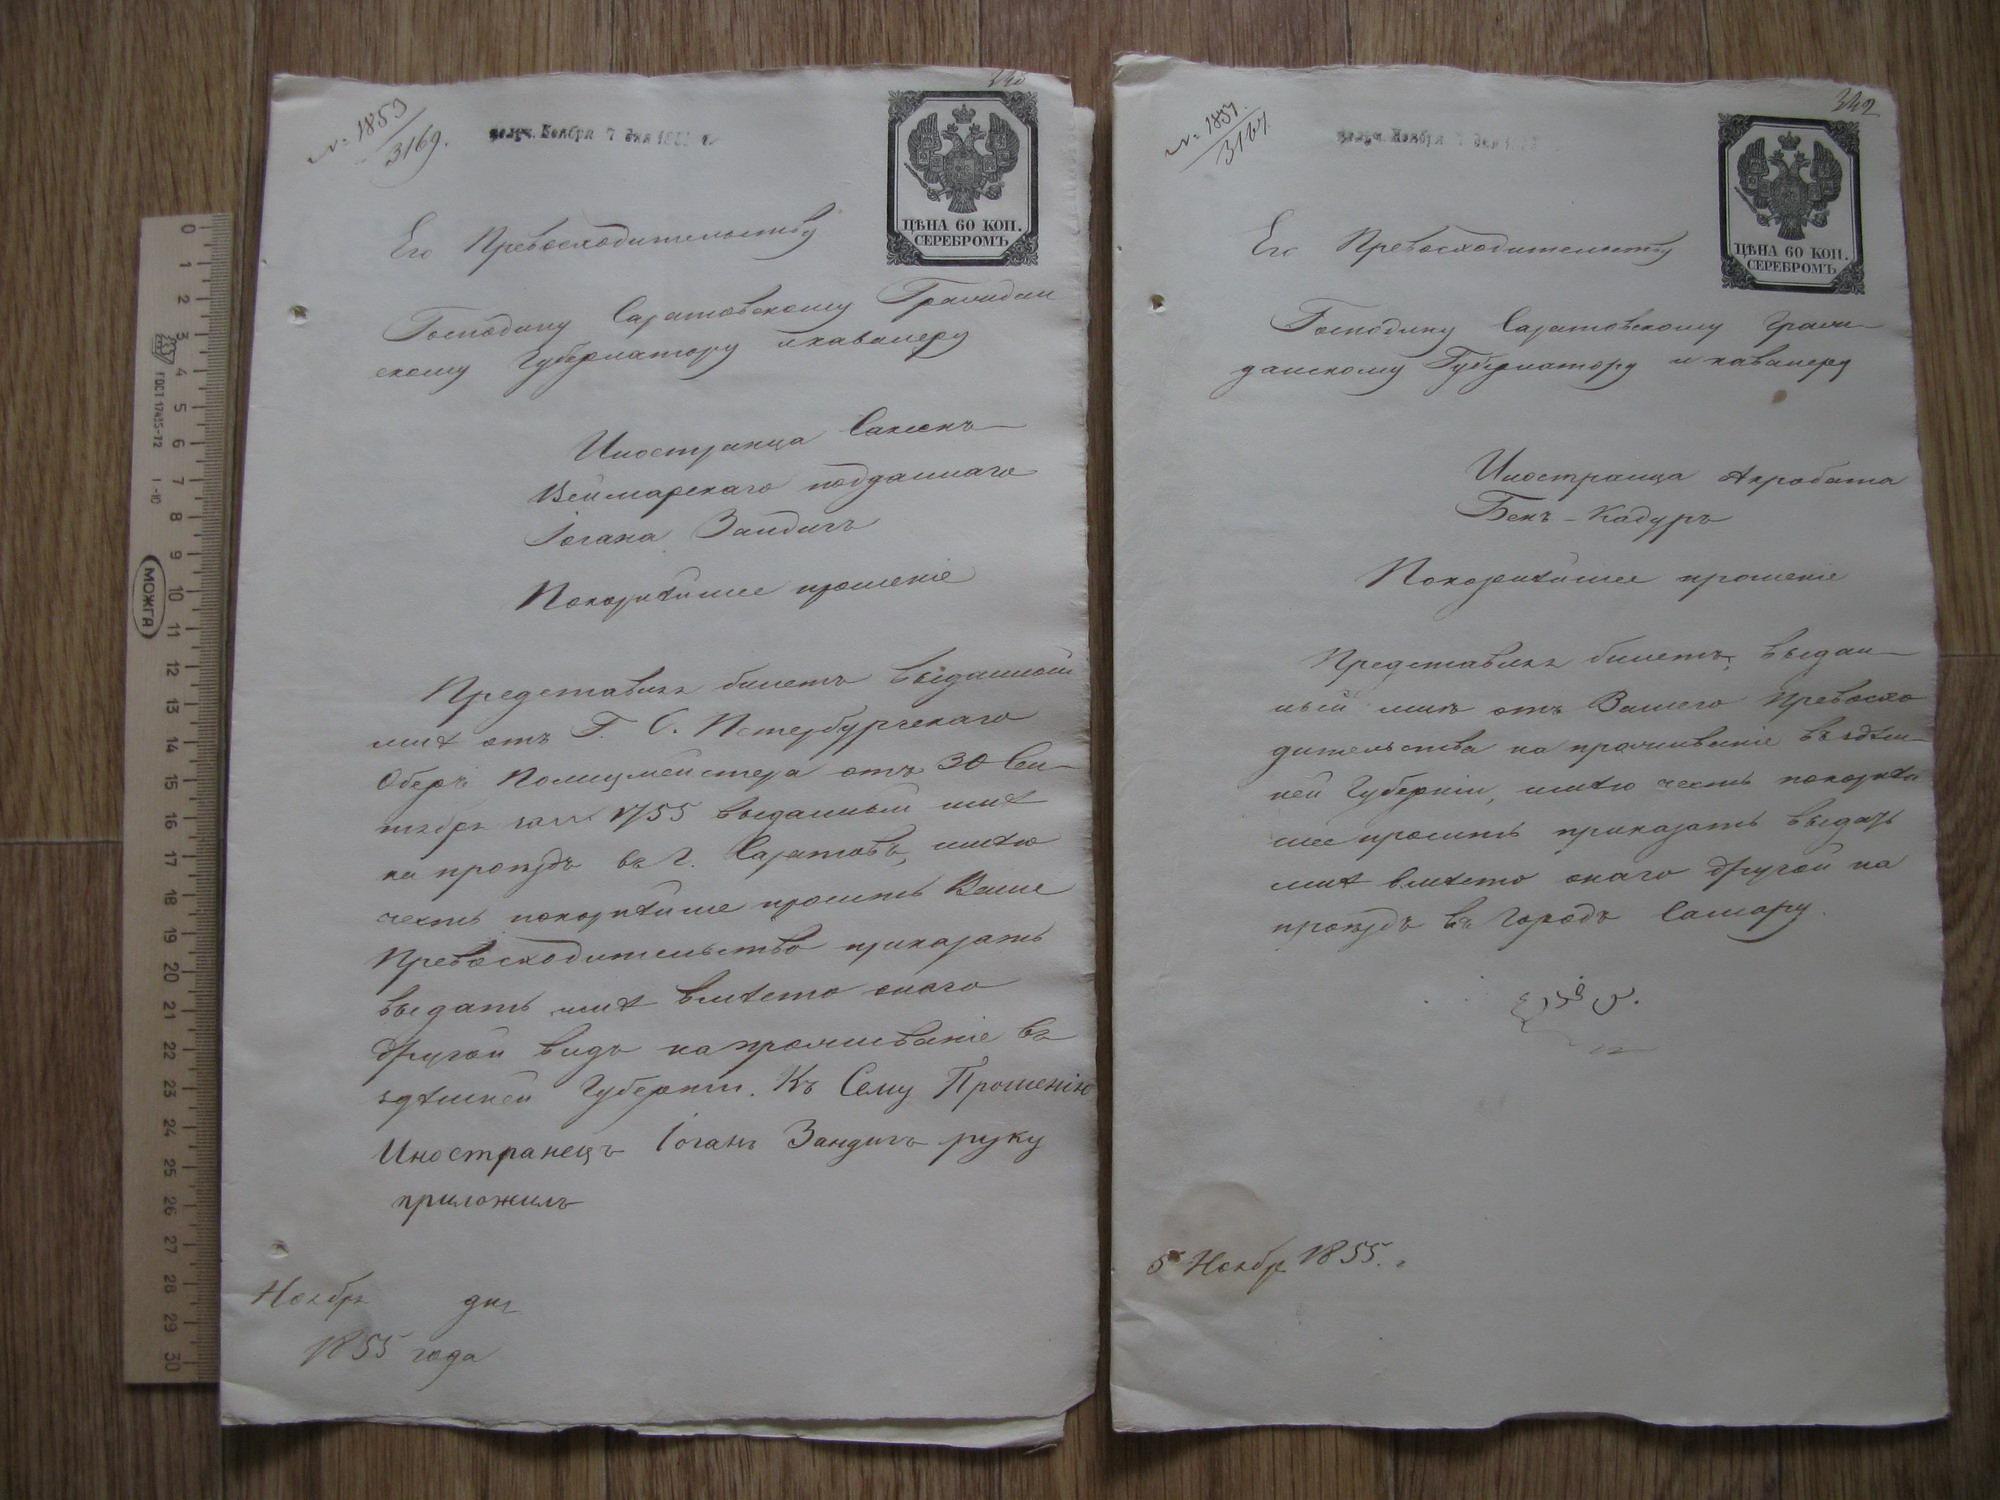 № 1853
3169.
получ. Ноября 7 дня 1855 г.
ЦѢНА 60 КОП.
СЕРЕБРОМЪ
Его Превосходительству
Господину Саратовскому Граждан
скому Губернатору и кавалеру
Иностранца Саксенъ
Веймарскаго подданнаго
Іогана Зандигъ
Покорнѣйшее прошеніе
Представляя билетъ выданный
мнѣ отъ Г. С. Петербургскаго
Оберъ Полицмейстера отъ 30 Сен-
тября за № 1755 выданный мнѣ
на проѣздъ въ г. Саратовъ, имѣю
честь покорнѣйше просить Ваше
Превосходительство приказать
выдать мнѣ вмѣсто онаго
другой видъ на проживаніе въ
здѣшней Губерніи. Къ Сему Прошенію
Иностранецъ Іоганъ Зандигъ руку
приложилъ
Ноября дня
1855 года
342
№ 1857.
3167
получ. Ноября 7 дня
ЦѢНА 60 КОП.
СЕРЕБРОМЪ
Его Превосходительству
Господину Саратовскому Граж-
данскому Губернатору и кавалеру
Иностранца Акробата
Бенъ-Кадуръ
Покорнѣйшее прошеніе
Представляя билетъ, выдан-
ный мнѣ отъ Вашего Превосхо
дительства на проживаніе въ здѣш-
ней Губерніи, имѣю честь покорнѣй
ше просить приказать выдать
мнѣ вмѣсто онаго другой на
проѣздъ въ городъ Самару.
5 Ноября 1855. г
0
1
2
3
4
5
6
7
8
9
10
11
12
13
14
15
16
17
18
19
20
21
22
23
24
25
26
27
28
29
30
ГОСТ 17435-72
1-10
МОЖГА